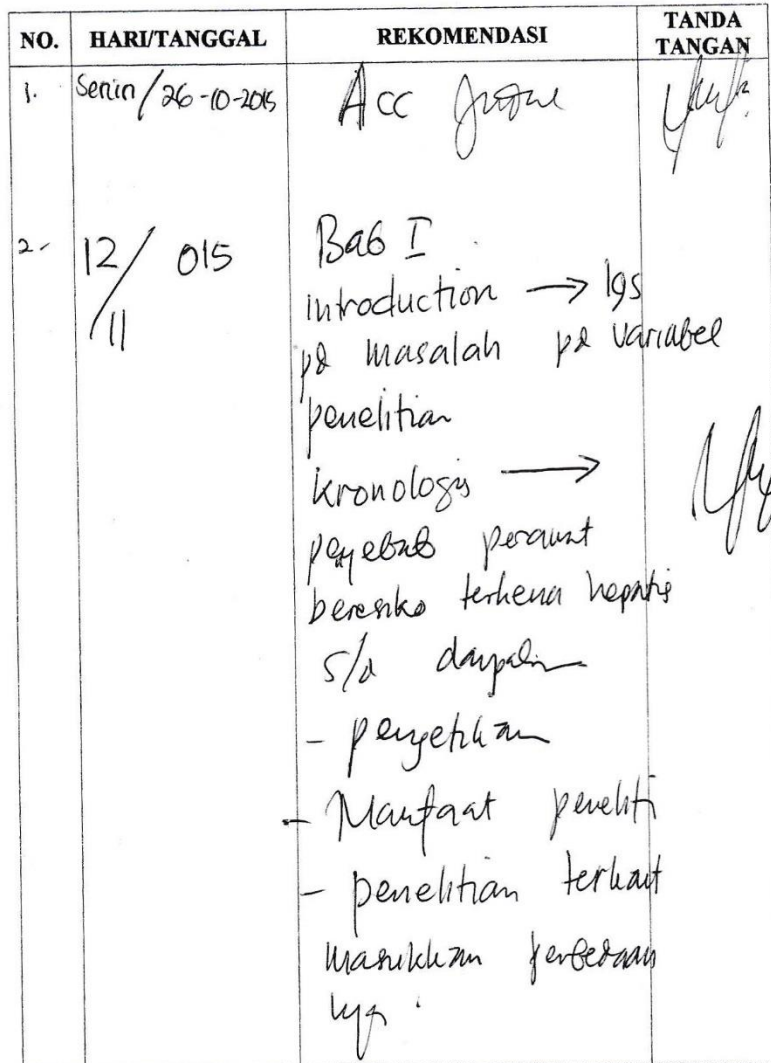 NO. HARI/TANGGAL REKOMENDASI TANDA TANGAN
1. Senin/26-10-2015 Acc
2. 12/11 015 Bab I
introduction → lgs
pd masalah pd variabel
penelitian
kronologis →
penyebab perawat
beresiko terkena hepatis
s/d
- pengetikan
- Manfaat peneliti
- penelitian terkait
masukkan perbedaan
nya.